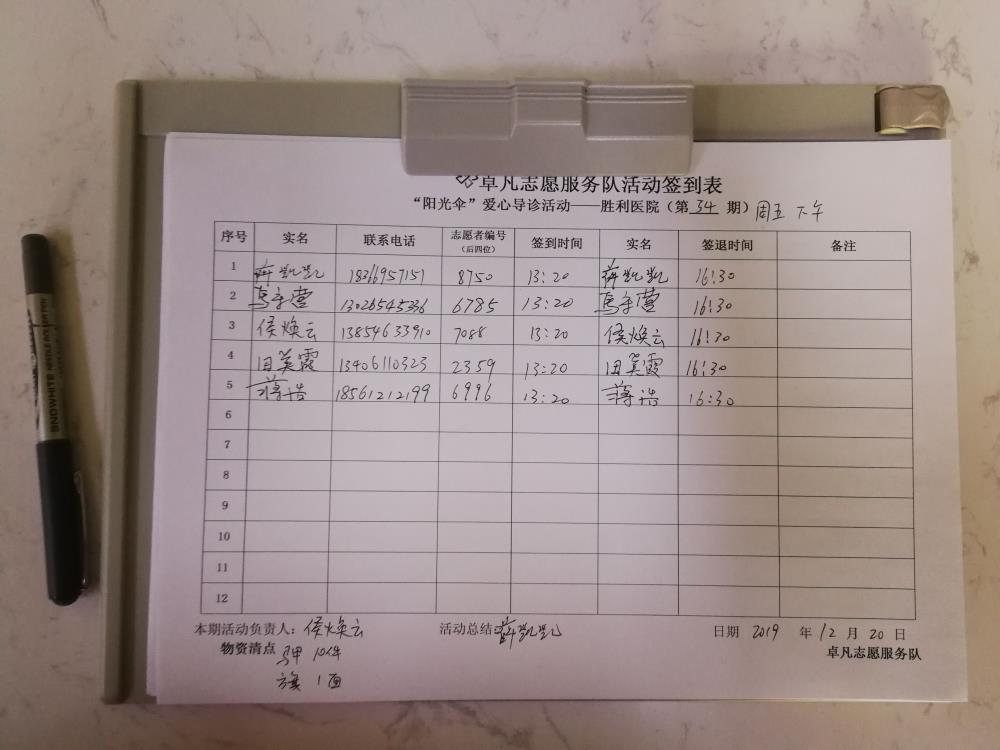 卓凡志愿服务队活动签到表
“阳光伞”爱心导诊活动——胜利医院（第 34 期）周五 下午
序号 实名 联系电话 志愿者编号（后四位） 签到时间 实名 签退时间 备注
1 薛凯凯 18366957151 8750 13:20 薛凯凯 16:30
2 13026545336 6785 13:20 16:30
3 侯焕云 13854633910 7088 13:20 侯焕云 16:30
4 田美霞 13406110323 2359 13:20 田美霞 16:30
5 蒋浩 18561212199 6996 13:20 蒋浩 16:30
6
7
8
9
10
11
12
本期活动负责人：侯焕云 活动总结 薛凯凯 日期 2019 年 12 月 20 日
物资清点 马甲 10件 卓凡志愿服务队
旗 1面
SNOWHITE